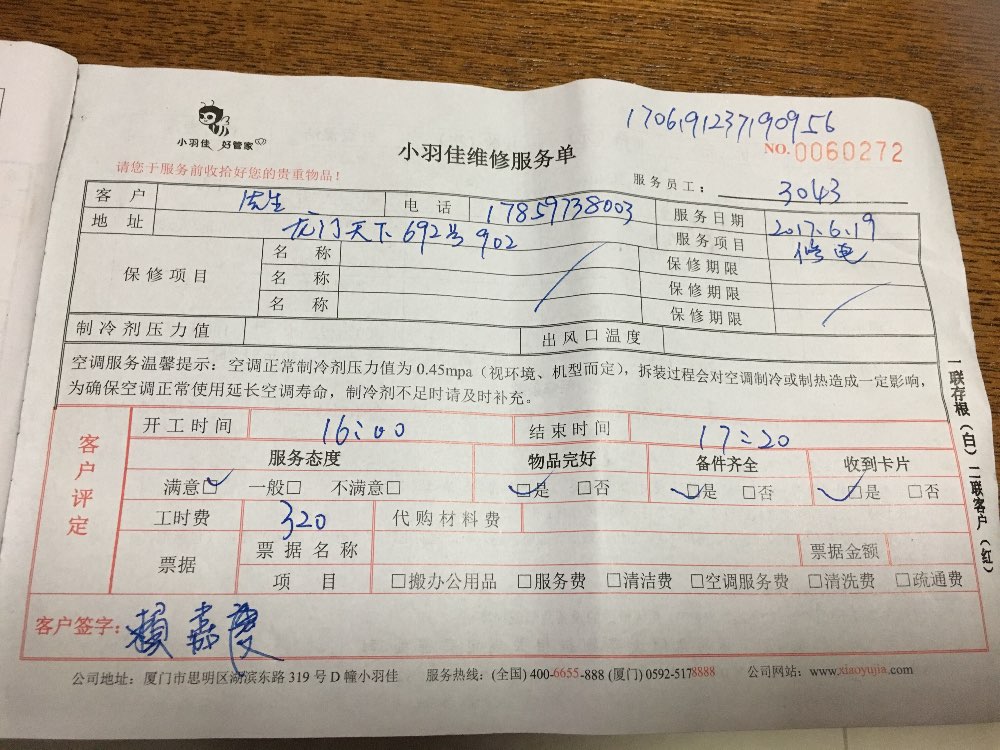 170619123719 0956
小羽佳 好管家
小羽佳维修服务单
NO.0060272
请您于服务前收拾好您的贵重物品！
服务员工： 3043
客户 电话 17859738003 服务日期 2017.6.19
地址 龙门天下692号902 服务项目 修电
保修项目 名称 保修期限
名称 保修期限
名称 保修期限
制冷剂压力值 出风口温度
空调服务温馨提示：空调正常制冷剂压力值为0.45mpa（视环境、机型而定），拆装过程会对空调制冷或制热造成一定影响，
为确保空调正常使用延长空调寿命，制冷剂不足时请及时补充。
客户评定
开工时间 16:00 结束时间 17:20
服务态度 物品完好 备件齐全 收到卡片
满意□ 一般□ 不满意□ □是 □否 □是 □否 □是 □否
工时费 320 代购材料费
票据 票据名称 票据金额
项目 □搬办公用品 □服务费 □清洁费 □空调服务费 □清洗费 □疏通费
客户签字：賴嘉慶
公司地址：厦门市思明区湖滨东路319号D幢小羽佳 服务热线：(全国) 400-6655-888 (厦门) 0592-5178888 公司网站：www.xiaoyujia.com
一联存根（白）二联客户（红）